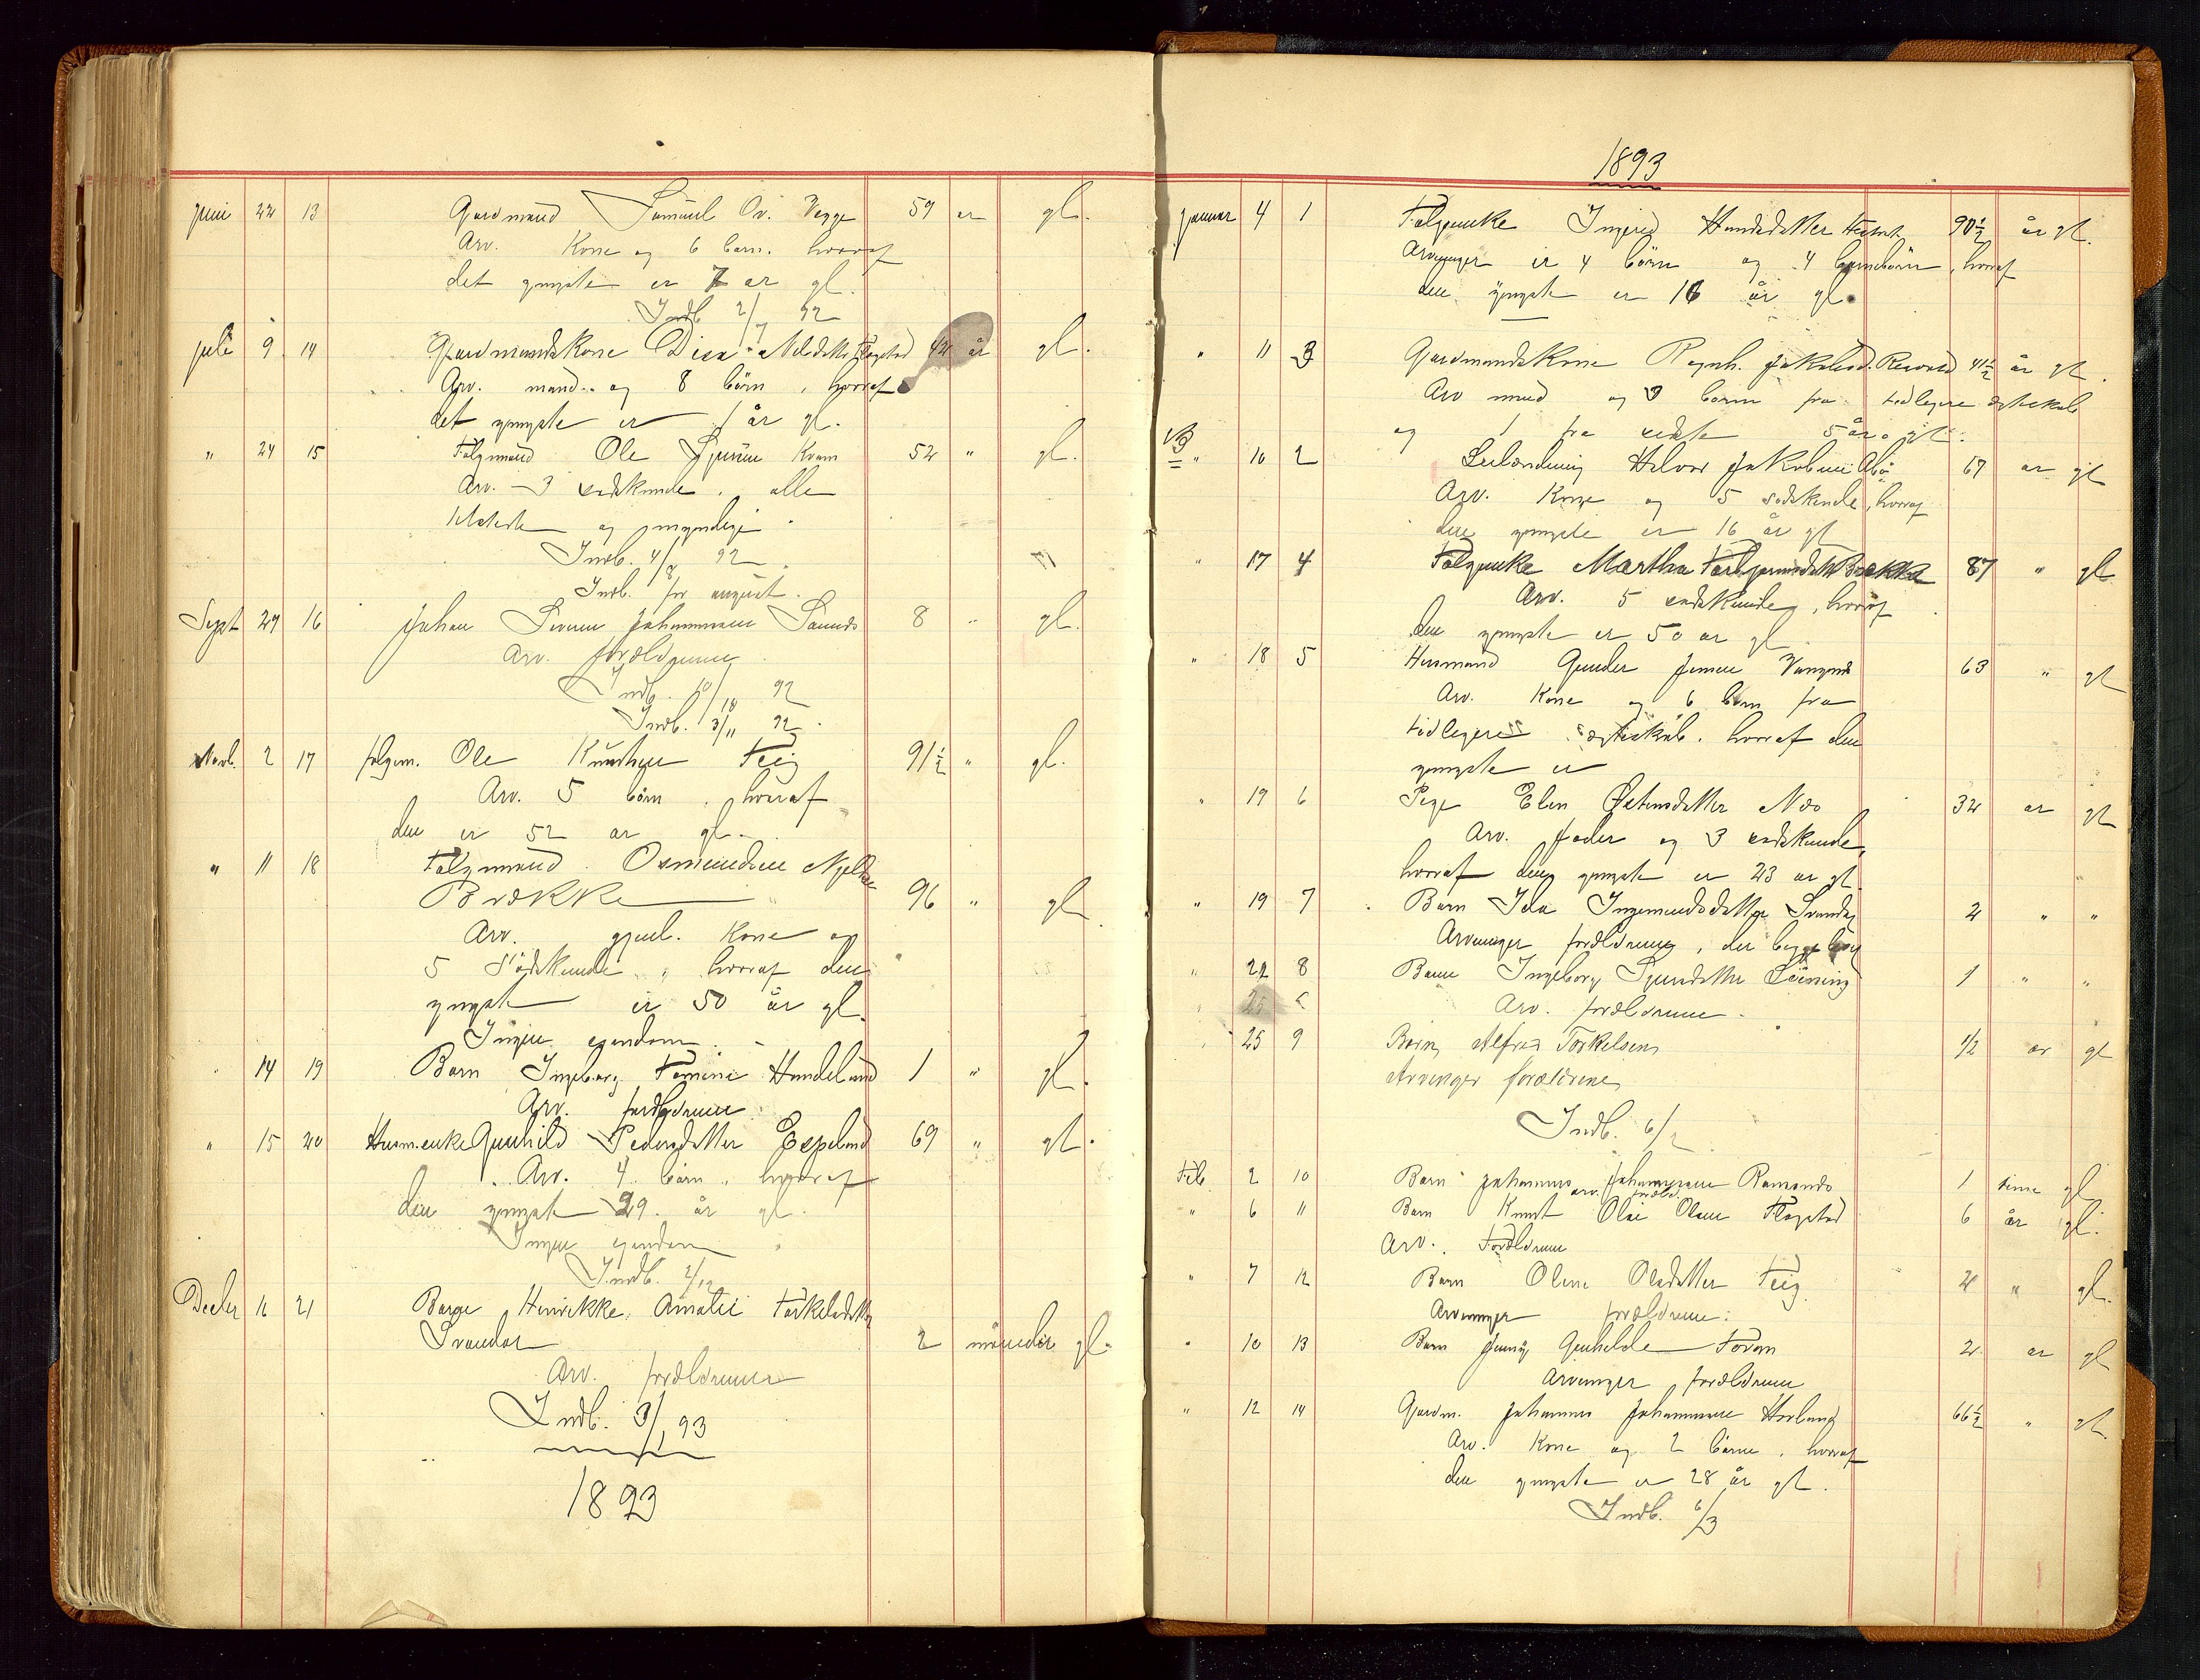 juni 22 13 Gardmand Samuel Os. Vegge 59 ar gl.
Arv. Kone og 6 barn. hvoraf
det yngste er 7 ar gl.
Indb 2/7 92
juli 9 14 Gardmandskone Nilsdatter 42 år gl.
Arv. mand og 8 börn, hvoraf
det yngste er 1 år gl.
" 24 15 Folgmand Ole Kvam 52 " gl.
Arv. 3 sødskende, alle
og myndige.
Indb. 4/8 92
Indb. for august.
Sept 29 16 Johan Johannesen 8 " gl.
Arv. forældrene
Indb. 10/10 92
Indb. 3/11 92
Novb. 2 17 folgm. Ole Knudsen Teig 91½ " gl.
Arv. 5 börn, hvoraf
den er 52 ar gl.
" 11 18 Folgmand Osmundsen
Brække 96 " gl
Arv. gjenl. Kone og
5 Södskende, hvoraf den
yngste er 50 år gl.
Ingen ejendom.
" 14 19 Barn Ingeborg Tomine Hundeland 1 " gl.
Arv. forældrene
" 15 20 Husm.enke Gunhild Pedersdatter Espeland 69 " gl.
Arv. 4 börn, hvoraf
den yngste 29 år gl.
Ingen ejendom
Indb. 2/12
Decbr 16 21 Henrikke Amalie Torkelsdatter
Svandal 2 måneder gl.
Arv. forældrene
Indb. 3/1 93
1893
1893
januar 4 1 Folgenke Ingrid 90½ år gl.
Arvinger er 4 börn og 4 börnebörn, hvoraf
den yngste er 16 år gl.
" 11 3 Gardmandskone Jakobsd. 41½ år gl.
Arv mand og 3 börn fra tidligere ægteskab
og 1 fra sidste 5 år gl.
NB " 16 2 Halvor Jakobsen 67 ar gl
Arv. Kone og 5 sødskende, hvoraf
den yngste er 16 år gl
" 17 4 Folgenke Martha Brække 87 " gl
Arv. 5 sødskende, hvoraf
den yngste er 50 ar gl
" 18 5 Husmand Gunder Jensen 63 " gl
Arv. Kone og 6 börn fra
tidligere ægteskab. hvoraf den
yngste er
" 19 6 Pige Elen Østensdatter 32 ar gl
Arv. fader og 3 sødskende,
hvoraf den yngste er 23 ar gl
" 19 7 Barn Ida Ingemundsdatter 2 " "
Arvinger forældrene, der begge lever
" 22 8 Barn Ingeborg 1 " "
Arv. forældrene.
" 25 9 Barn Alfred Torkelsen 1/2 ar gl
Arvinger forældrene
Indb. 6/2
Feb. 2 10 Barn Johannes Johannesen 1 time gl
arv. foræld.
" 6 11 Barn Knut Olai Olsen Flagstad 6 år gl.
Arv. Forældrene
" 7 12 Barn Olene Olsdatter Teig 2 " gl.
Arvinger forældrene:
" 10 13 Barn Jenny Gunhilde 2 ar gl
Arvinger forældrene
" 12 14 Gardm. Johannes Johannesen 66½ " gl.
Arv. Kone og 2 börn, hvoraf
den yngste er 28 år gl.
Indb. 6/3